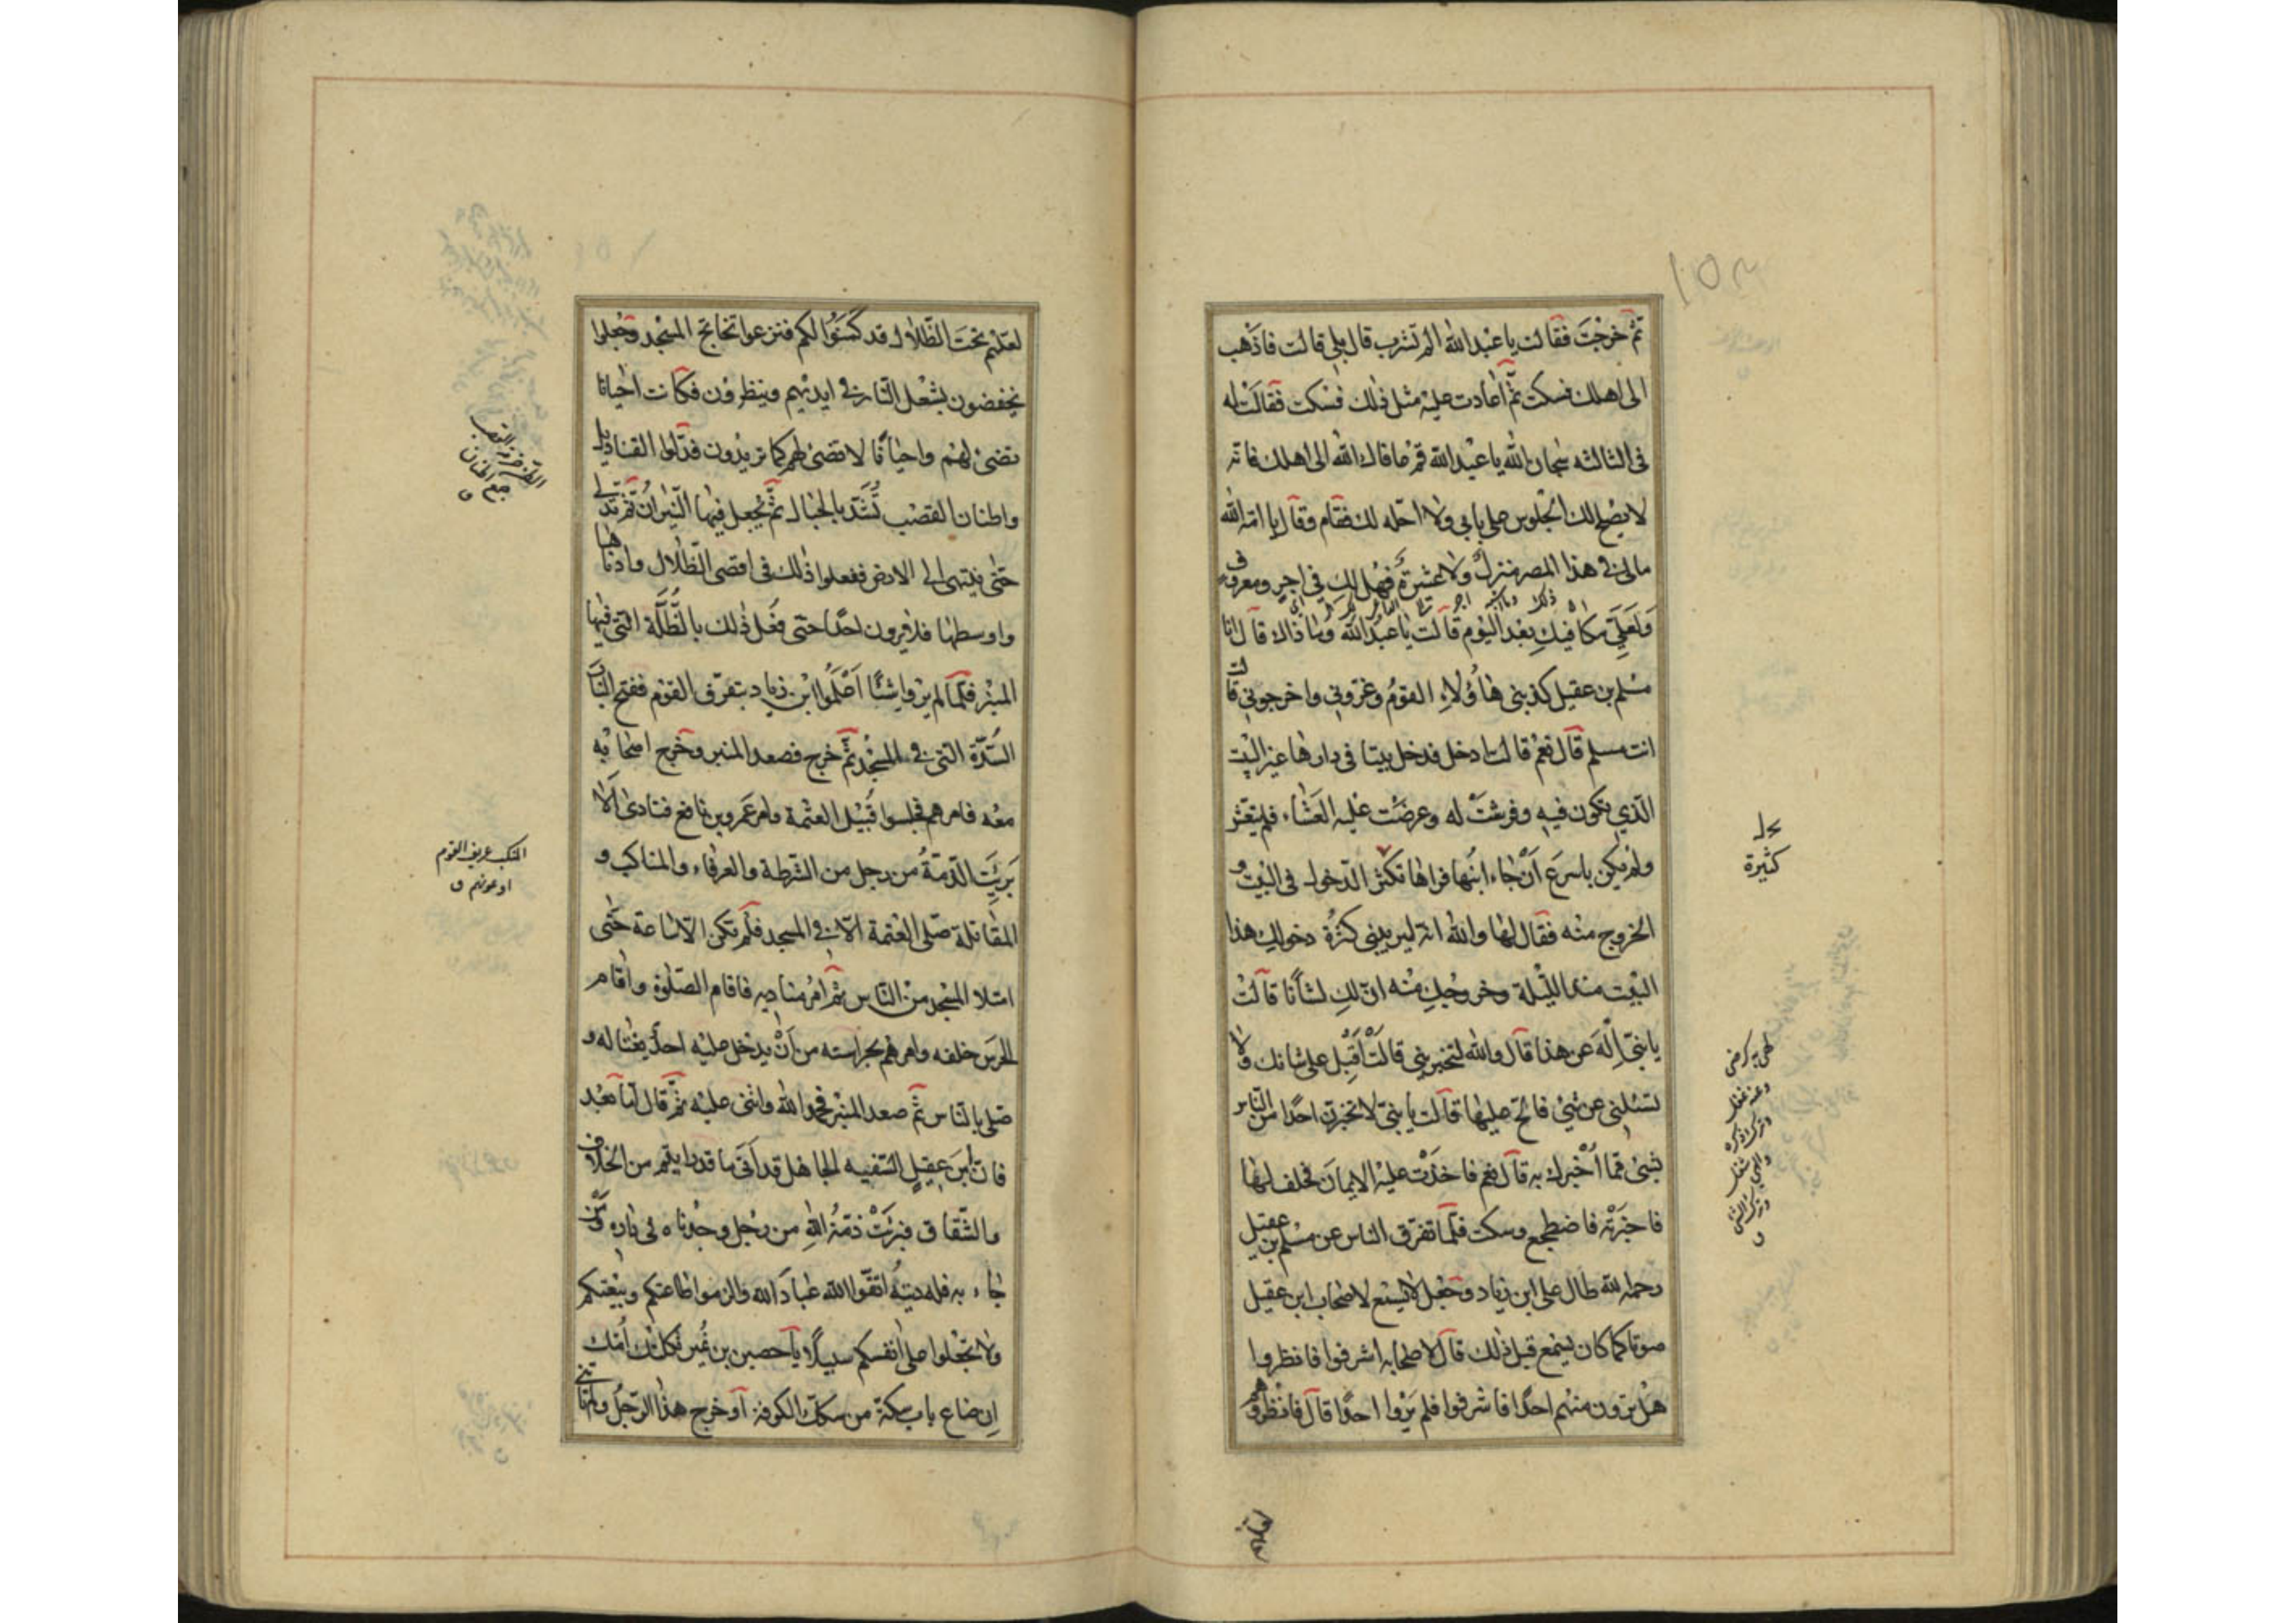 ١٥٣
ثم خرجت فقالت يا عبد الله الم تشرب قال بلى قالت فاذهب
الى اهلك فسكت ثم اعادت عليه مثل ذلك فسكت فقالت له
فى الثالثه سبحان الله يا عبد الله قم عافاك الله الى اهلك فانه
لا يصلح لك الجلوس على بابى ولا احله لك فقام وقال يا امة الله
مالى فى هذا المصر منزل ولا عشيرة فهل لك فى اجر ومعروف
ولعلى مكافيك بعد اليوم قالت يا عبد الله وما ذاك قال انا
مسلم بن عقيل كذبنى هاؤلاء القوم وغرونى واخرجونى قالت
انت مسلم قال نعم قالت ادخل فدخل بيتا فى دارها غير البيت
الذي تكون فيه وفرشت له وعرضت عليه العشاء فلم يتعش
ولم يكن باسرع ان جاء ابنها فراها تكثر الدخول فى البيت و
الخروج منه فقال لها والله انه ليريبنى كثرة دخولك هذا
البيت منذ الليلة وخروجك منه ان لك لشأنا قالت
يا بنى اله عن هذا قال والله لتخبرينى قالت اقبل على شانك ولا
تسئلنى عن شئ فالح عليها قالت يا بنى لا تخبرن احدا من الناس
بشئ مما اخبرك به قال نعم فاخذت عليه الايمان فحلف لها
فاخبرته فاضطجع وسكت فلما تفرق الناس عن مسلم بن عقيل
رحمه الله طال على ابن زياد وجعل لا يسمع لاصحاب ابن عقيل
صوتا كما كان يسمع قبل ذلك قال لاصحابه اشرفوا فانظروا
هل ترون منهم احدا فاشرفوا فلم يروا احدا قال فانظروهم
كثيرة
لعلهم تحت الظلال قد كمنوا لكم فنزعوا تخاتج المسجد وجعلوا
يخفضون بشعل النار فى ايديهم وينظرون فكانت احيانا
تضئ لهم واحيانا لا تضئ لهم كما يريدون فدلوا القناديل
واطنان القصب تشد بالحبال ثم تجعل فيها النيران ثم تدلى
حتى ينتهى الى الارض ففعلوا ذلك فى اقصى الظلال وادناها
واوسطها فلا يرون احدا حتى فعل ذلك بالظلة التى فيها
المنبر فلما لم يروا شيئا اعلموا ابن زياد بتفرق القوم ففتح الباب
السدة التى فى المسجد ثم خرج فصعد المنبر وخرج اصحابه
معه فامرهم فجلسوا قبيل العتمة وامر عمرو بن نافع فنادى الا
برئت الذمة من رجل من الشرطة والعرفاء والمناكب و
المقاتلة صلى العتمة الا فى المسجد فلم تكن الا ساعة حتى
امتلا المسجد من الناس ثم امر مناديه فاقام الصلوة واقام
الحرس خلفه وامرهم بحراسته من ان يدخل عليه احد يغتاله و
صلى بالناس ثم صعد المنبر فحمد الله واثنى عليه ثم قال اما بعد
فان ابن عقيل السفيه الجاهل قد اتى ما قد رايتم من الخلاف
والشقاق فبرئت ذمة الله من رجل وجدناه فى داره ومن
جاء به فله ديته اتقوا الله عباد الله والزموا طاعتكم وبيعتكم
ولا تجعلوا على انفسكم سبيلا يا حصين بن نمير ثكلتك امك
ان ضاع باب سكة من سكك الكوفة او خرج هذا الرجل ولم تاتنى
المنكب عريف القوم
او عونهم ق